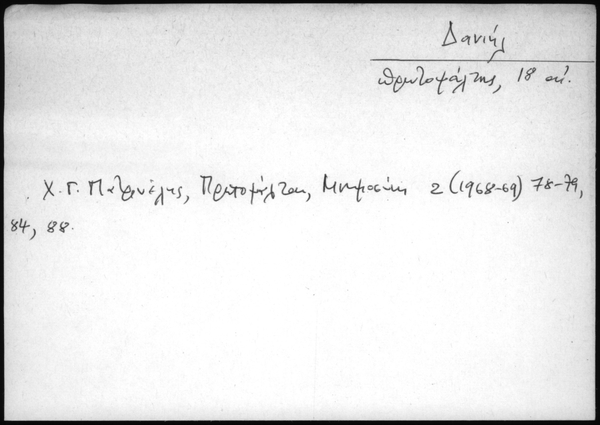 Δανιήλ
πρωτοψάλτης, 18 αἰ.
Χ. Γ. Πατρινέλης, Πρωτοψάλται, Μνημοσύνη 2 (1968-69) 78-79,
84, 88.